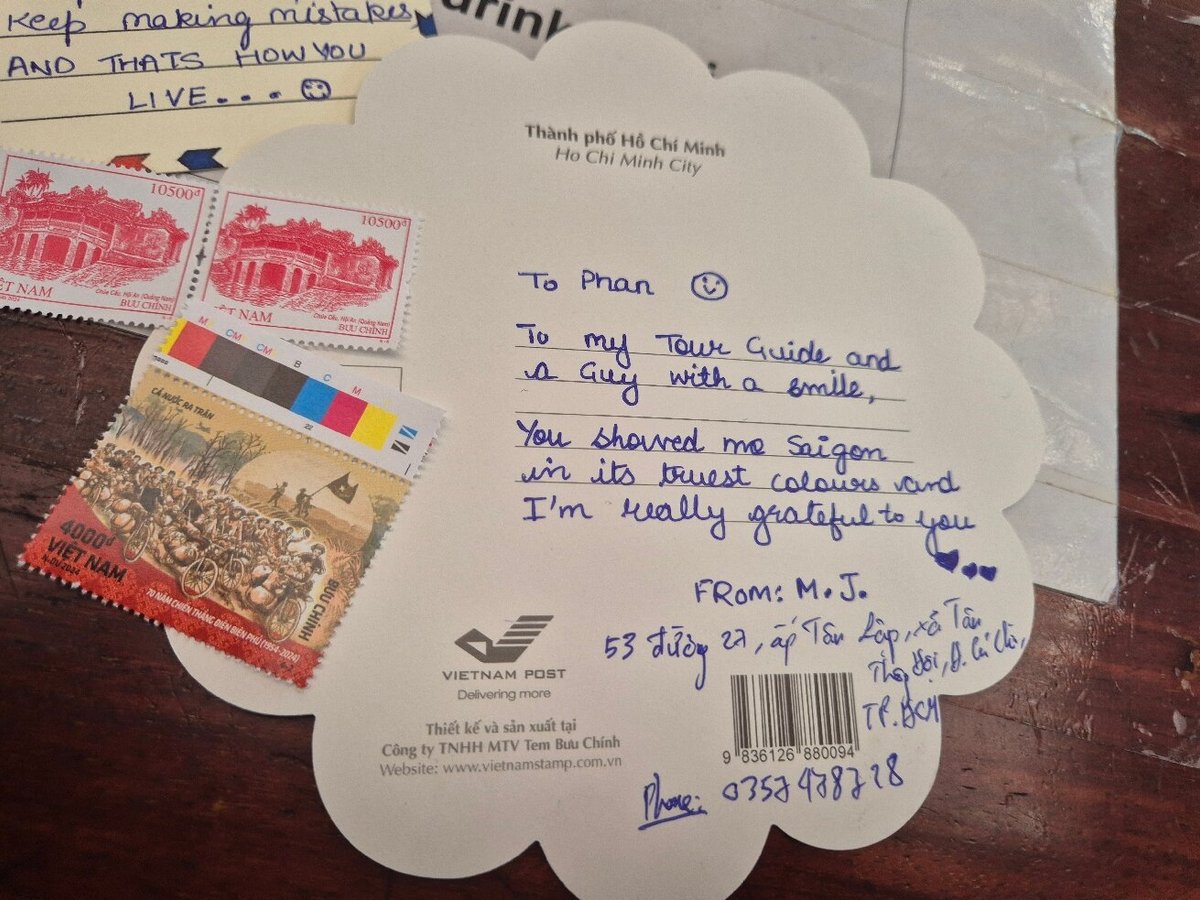 drink
Keep making mistakes
AND THATS HOW YOU
LIVE....
Thành phố Hồ Chí Minh
Ho Chi Minh City
10500đ
ỆT NAM
Chùa Cầu, Hội An (Quảng Nam)
BƯU CHÍNH
10500đ
ỆT NAM
Chùa Cầu, Hội An (Quảng Nam)
BƯU CHÍNH
M CM CM B C M
22
VA
CẢ NƯỚC RA TRẬN
4000đ
VIỆT NAM
BƯU CHÍNH
70 NĂM CHIẾN THẮNG ĐIỆN BIÊN PHỦ (1954-2024)
To Phan
To my Tour Guide and
a Guy with a smile,
You showed me Saigon
in its truest colours and
I'm really grateful to you
FROM: M.J.
53 đường 27, ấp Tân Lập, xã Tân
Thông Hội, H. Củ Chi,
TP.HCM
VIETNAM POST
Delivering more
Thiết kế và sản xuất tại
Công ty TNHH MTV Tem Bưu Chính
Website: www.vietnamstamp.com.vn
9 836126 880094
Phone: 0357478728